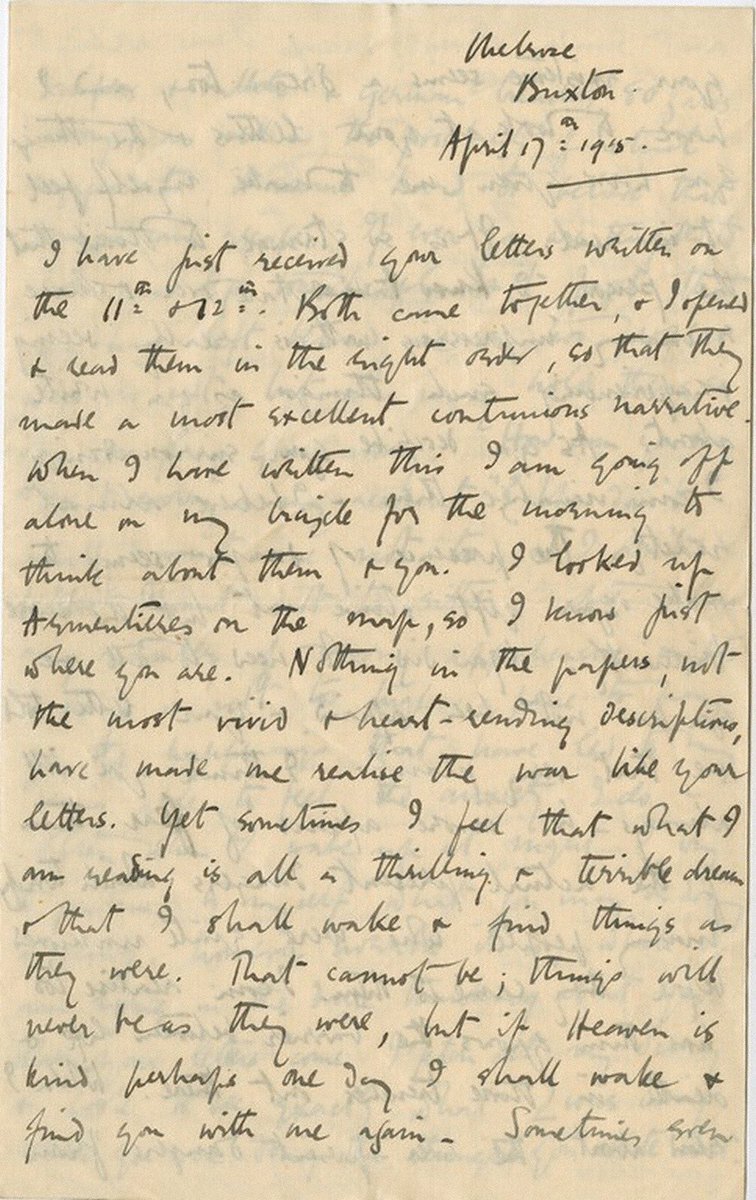 Melrose
Buxton.
April 17th 1915.
I have just received your letters written on
the 11th & 12th. Both came together, & I opened
& read them in the right order, so that they
made a most excellent continuous narrative.
When I have written this I am going off
alone on my bicycle for the morning to
think about them & you. I looked up
Armentières on the map, so I know just
where you are. Nothing in the papers, not
the most vivid & heart-rending descriptions,
have made me realise the war like your
letters. Yet sometimes I feel that what I
am reading is all a thrilling & terrible dream
& that I shall wake & find things as
they were. That cannot be; things will
never be as they were, but if Heaven is
kind perhaps one day I shall wake &
find you with me again - Sometimes even